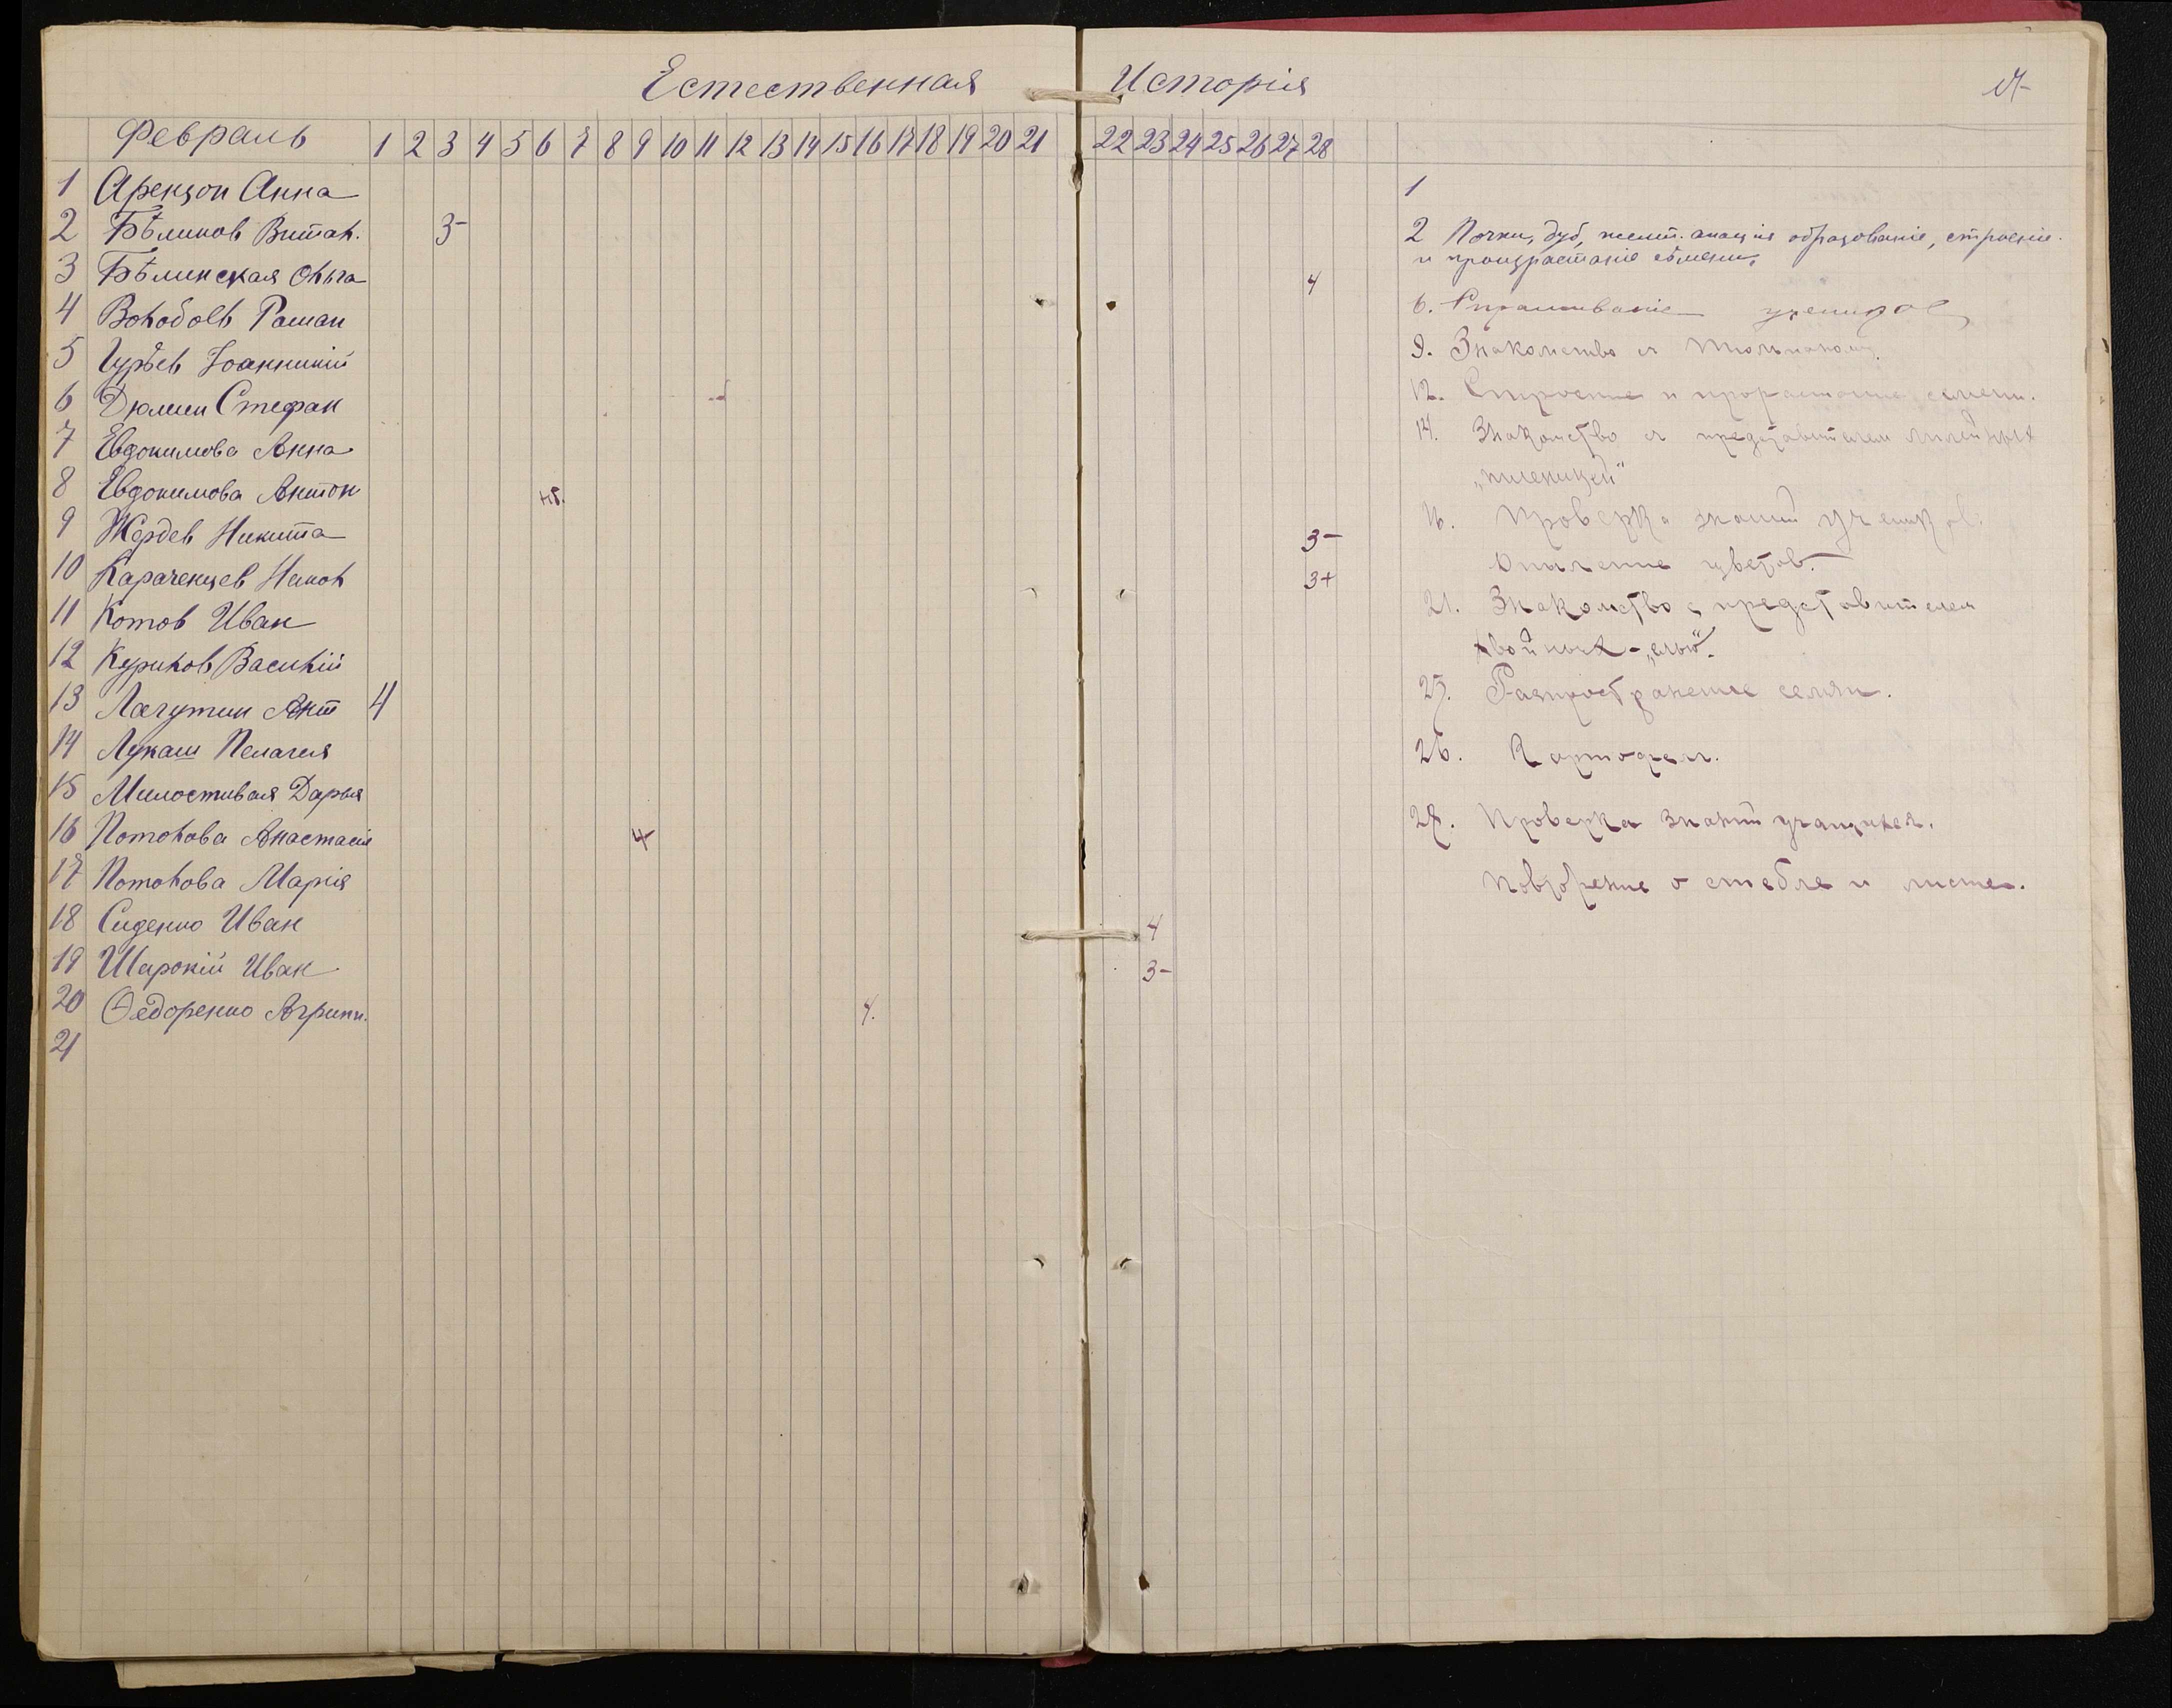 Естественная Исторія
Февраль 1 2 3 4 5 6 7 8 9 10 11 12 13 14 15 16 17 18 19 20 21 22 23 24 25 26 27 28
1 Аренсон Анна
2 Бѣликов Витал. 3-
3 Бѣлинская Ольга 4
4 Волобоев Роман
5 Гурьев Іоанникій
6 Дюмин Стефан
7 Евдокимова Анна
8 Евдокимова Антон нб.
9 Жердев Никита 3-
10 Караченцев 3+
11 Котов Иван
12 Курилов Василій
13 Лагутин Ант 4
14 Лукаш Пелагея
15 Милостивая Дарья
16 Потолова Анастасія 4
17 Потолова Марія
18 Сиденко Иван 4
19 Широкій Иван 3-
20 Ѳедоренко Агрипп. 4.
21
1
2 Почки, дуб, желт. акація образованіе, строеніе
и произрастаніе сѣмени.
6. Спрашиваніе учеников
9. Знакомство с тюльпаном.
12. Строение и прорастание семени.
14. Знакомство с представителем лилейных
„пшеницей"
16. Проверка знаний учеников.
Опыление цветов.
21. Знакомство с представителем
хвойных - „елью".
23. Распространение семян.
26. Картофель.
28. Проверка знаний учащихся.
Повторение о стебле и листе.